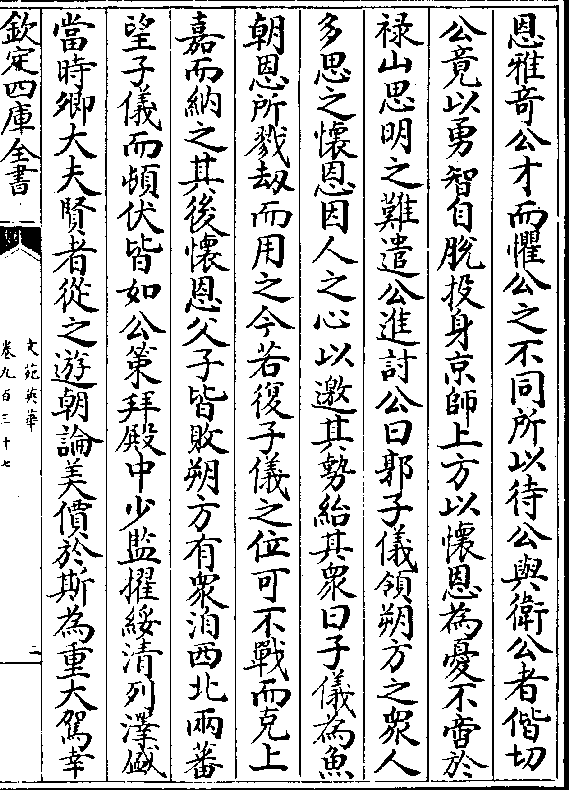 恩雅竒公才而懼公之不同所以待公與衛公者偕切
公竟以勇智自脫投身京師上方以懷恩為憂不啻於
禄山思明之難遣公進討公曰郭子儀領朔方之衆人
多思之懷恩因人之心以邀其勢紿其衆曰子儀為魚
朝恩所戮刼而用之今若復子儀之位可不戰而克上
嘉而納之其後懷恩父子皆敗朔方有衆洎西北兩蕃
望子儀而頓伏皆如公策拜殿中少監擢綏清列澤盛
當時卿大夫賢者從之遊朝論美價於斯為重大駕幸
欽定四庫全書
文苑英華
卷九百三十七
二